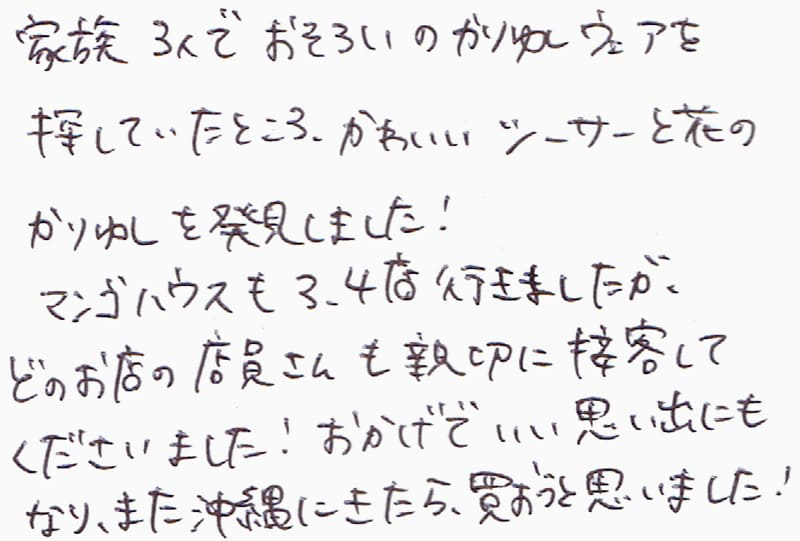 家族3人でおそろいのかりゆしウェアを
探していたところ、かわいいシーサーと花の
かりゆしを発見しました!
マンゴハウスも3、4店行きましたが、
どのお店の店員さんも親切に接客して
くださいました!おかげでいい思い出にも
なり、また沖縄にきたら、買おうと思いました!